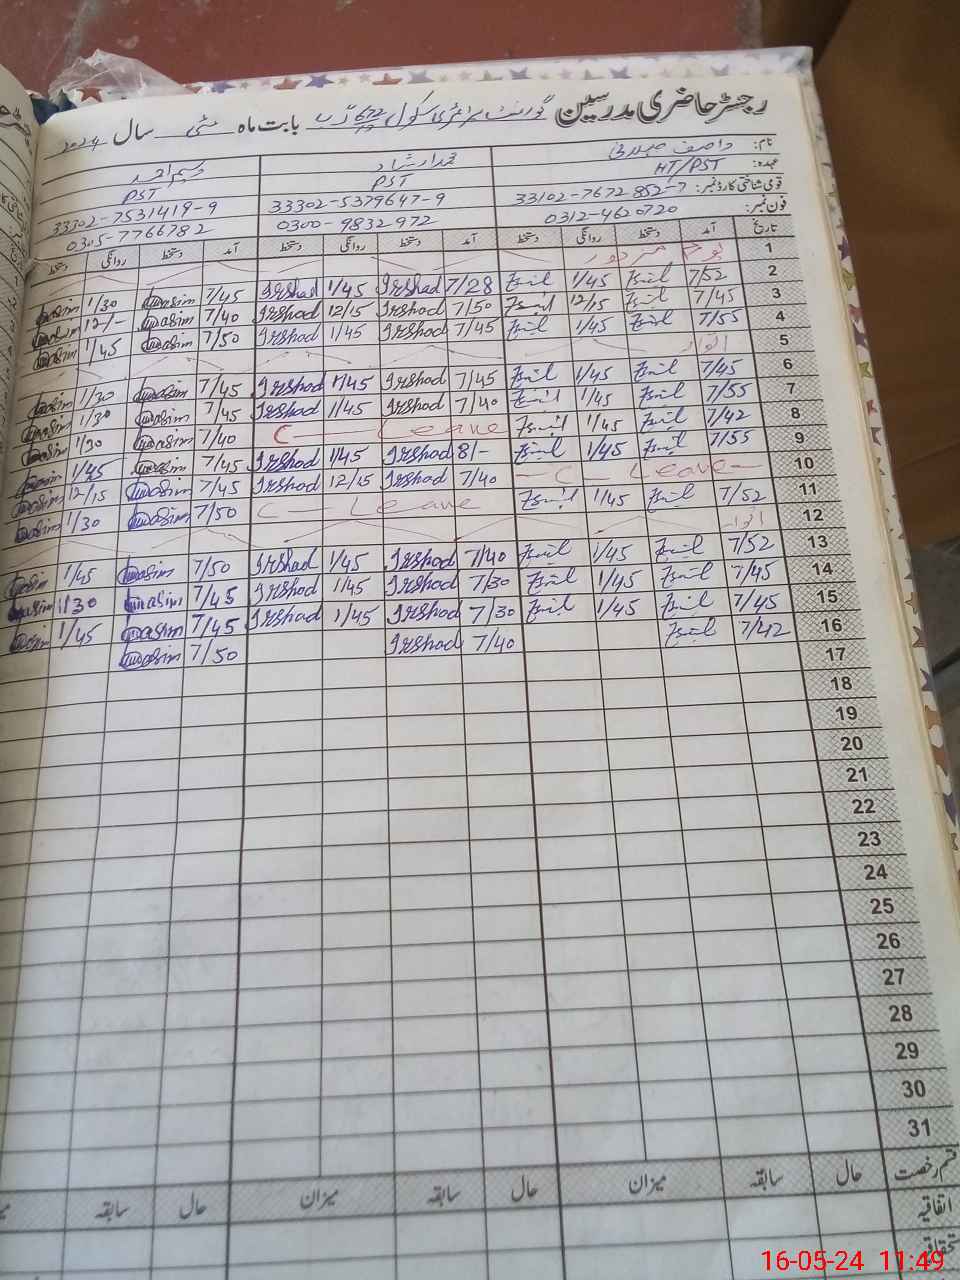 رجسٹر حاضری مدرسین گورنمنٹ پرائمری سکول 672 گ ب بابت ماہ مئی سال 2024
نام: محمد ارشاد وسیم احمد
عہدہ: HT/PST PST PST
قومی شناختی کارڈ نمبر: 33102-7672852-7 33302-5379647-9 33302-7531419-9
فون نمبر: 0312-4620720 0300-9832972 0305-7766782
تاریخ آمد دستخط روانگی دستخط آمد دستخط روانگی دستخط آمد دستخط روانگی دستخط
1 یوم مزدور
2 7/52 1/45 7/28 Irshad 1/45 Irshad 7/45 Qwasim 1/30 Qwasim
3 7/45 12/15 7/50 Irshad 12/15 Irshad 7/40 Qwasim 12/-
4 7/55 1/45 7/45 Irshad 1/45 Irshad 7/50 Qwasim 1/45 Qwasim
5 اتوار
6 7/45 1/45 7/45 Irshad 1/45 Irshad 7/45 Qwasim 1/30 Qwasim
7 7/55 1/45 7/40 Irshad 1/45 Irshad 7/45 Qwasim 1/30 Qwasim
8 7/42 1/45 C — Leave 7/40 Qwasim 1/30 Qwasim
9 7/55 1/45 8/- Irshad 1/45 Irshad 7/45 Qwasim 1/45 Qwasim
10 — C — Leave — 7/40 Irshad 12/15 Irshad 7/45 Qwasim 12/15 Qwasim
11 7/52 1/45 C — Leave 7/50 Qwasim 1/30 Qwasim
12 اتوار
13 7/52 1/45 7/40 Irshad 1/45 Irshad 7/50 Qwasim 1/45 Qwasim
14 7/45 1/45 7/30 Irshad 1/45 Irshad 7/45 Qwasim 1/30 Qwasim
15 7/45 1/45 7/30 Irshad 1/45 Irshad 7/45 Qwasim 1/45 Qwasim
16 7/42 7/40 Irshad 7/50 Qwasim
17
18
19
20
21
22
23
24
25
26
27
28
29
30
31
قسم رخصت حال سابقہ میزان حال سابقہ میزان حال سابقہ
اتفاقیہ
16-05-24 11:49